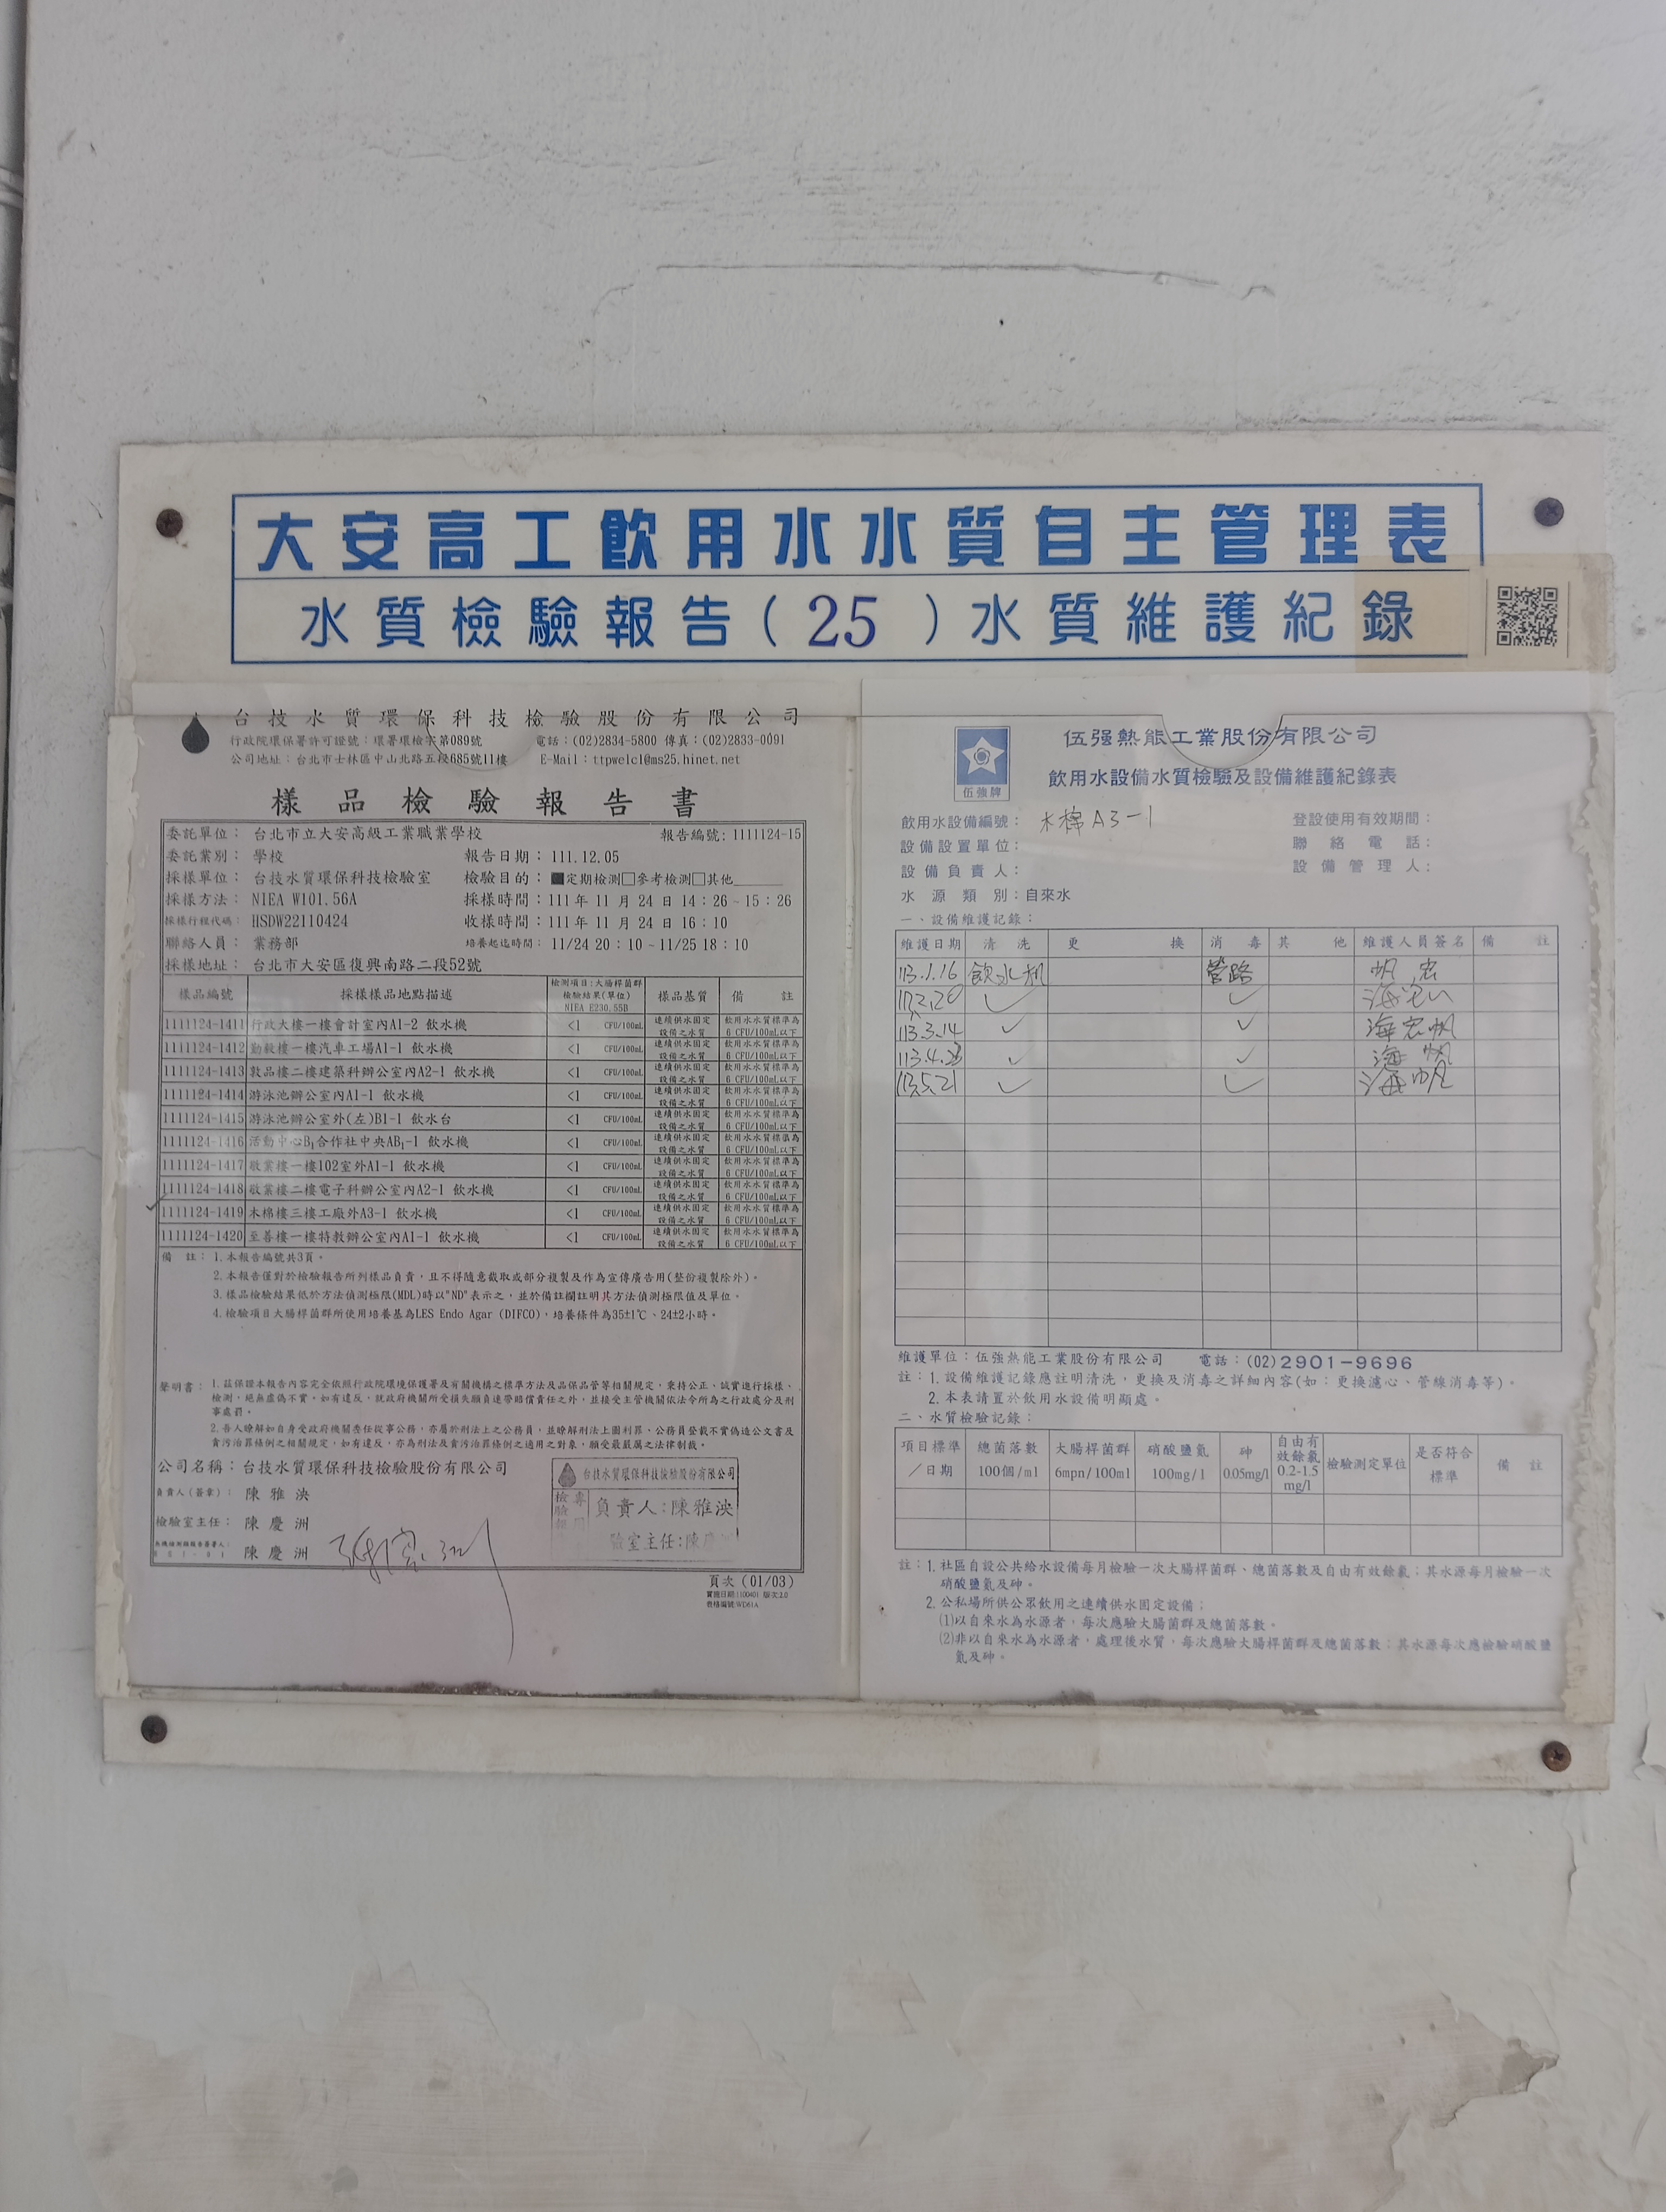 大安高工飲用水水質自主管理表
水質檢驗報告(25)水質維護紀錄
台技水質環保科技檢驗股份有限公司
行政院環保署許可證號：環署環檢字第089號 電話：(02)2834-5800 傳真：(02)2833-0091
公司地址：台北市士林區中山北路五段685號11樓 E-Mail：ttpwelcl@ms25.hinet.net
樣品檢驗報告書
委託單位： 台北市立大安高級工業職業學校 報告編號：1111124-15
委託業別： 學校 報告日期：111.12.05
採樣單位： 台技水質環保科技檢驗室 檢驗目的：■定期檢測□參考檢測□其他
採樣方法： NIEA W101.56A 採樣時間：111年 11月 24日 14：26~15：26
採樣行程代碼： HSDW22110424 收樣時間：111年 11月 24日 16：10
聯絡人員： 業務部 培養起迄時間： 11/24 20：10~11/25 18：10
採樣地址： 台北市大安區復興南路二段52號
樣品編號 採樣樣品地點描述 檢測項目：大腸桿菌群 檢驗結果(單位) NIEA E230.55B 樣品基質 備註
1111124-1411 行政大樓一樓會計室內A1-2 飲水機 <1 CFU/100mL 連續供水固定設備之水質 飲用水水質標準為6 CFU/100mL以下
1111124-1412 勤毅樓一樓汽車工場A1-1 飲水機 <1 CFU/100mL 連續供水固定設備之水質 飲用水水質標準為6 CFU/100mL以下
1111124-1413 敦品樓二樓建築科辦公室內A2-1 飲水機 <1 CFU/100mL 連續供水固定設備之水質 飲用水水質標準為6 CFU/100mL以下
1111124-1414 游泳池辦公室內A1-1 飲水機 <1 CFU/100mL 連續供水固定設備之水質 飲用水水質標準為6 CFU/100mL以下
1111124-1415 游泳池辦公室外(左)B1-1 飲水台 <1 CFU/100mL 連續供水固定設備之水質 飲用水水質標準為6 CFU/100mL以下
1111124-1416 活動中心B1合作社中央AB1-1 飲水機 <1 CFU/100mL 連續供水固定設備之水質 飲用水水質標準為6 CFU/100mL以下
1111124-1417 敬業樓一樓102室外A1-1 飲水機 <1 CFU/100mL 連續供水固定設備之水質 飲用水水質標準為6 CFU/100mL以下
1111124-1418 敬業樓二樓電子科辦公室內A2-1 飲水機 <1 CFU/100mL 連續供水固定設備之水質 飲用水水質標準為6 CFU/100mL以下
1111124-1419 木棉樓三樓工廠外A3-1 飲水機 <1 CFU/100mL 連續供水固定設備之水質 飲用水水質標準為6 CFU/100mL以下
1111124-1420 至善樓一樓特教辦公室內A1-1 飲水機 <1 CFU/100mL 連續供水固定設備之水質 飲用水水質標準為6 CFU/100mL以下
備 註：1.本報告編號共3頁。
2.本報告僅對於檢驗報告所列樣品負責，且不得隨意截取或部分複製及作為宣傳廣告用(整份複製除外)。
3.樣品檢驗結果低於方法偵測極限(MDL)時以"ND"表示之，並於備註欄註明其方法偵測極限值及單位。
4.檢驗項目大腸桿菌群所使用培養基為LES Endo Agar (DIFCO)，培養條件為35±1℃、24±2小時。
聲明書：1.茲保證本報告內容完全依照行政院環境保護署及有關機構之標準方法及品保品管等相關規定，秉持公正、誠實進行採樣、
檢測，絕無虛偽不實，如有違反，就政府機關所受損失願負連帶賠償責任之外，並接受主管機關依法令所為之行政處分及刑
事處罰。
2.吾人瞭解如自身受政府機關委任從事公務，亦屬於刑法上之公務員，並瞭解刑法上圖利罪，公務員登載不實偽造公文書及
貪污治罪條例之相關規定，如有違反，亦為刑法及貪污治罪條例之適用之對象，願受最嚴厲之法律制裁。
公司名稱：台技水質環保科技檢驗股份有限公司
負責人(簽章)： 陳雅泱
檢驗室主任： 陳慶洲
陳慶洲
台技水質環保科技檢驗股份有限公司
負責人：陳雅泱
驗室主任：陳慶
頁次(01/03)
實施日期:100401 版次2.0
表格編號:WD61A
伍強牌
伍强熱能工業股份有限公司
飲用水設備水質檢驗及設備維護紀錄表
飲用水設備編號： 木棉A3-1 登設使用有效期間：
設備設置單位： 聯絡電話：
設備負責人： 設備管理人：
水源類別：自來水
一、設備維護記錄：
維護日期 清洗 更換 消毒 其他 維護人員簽名 備註
113.1.16 飲水机 管路 帆宏
✓ ✓
113.3.14 ✓ ✓ 海宏帆
113.4.23 ✓ ✓ 海帆
113.5.21 ✓ ✓ 海帆
維護單位：伍強熱能工業股份有限公司 電話：(02)2901-9696
註：1.設備維護記錄應註明清洗，更換及消毒之詳細內容(如：更換濾心、管線消毒等)。
2.本表請置於飲用水設備明顯處。
二、水質檢驗記錄：
項目標準／日期 總菌落數100個/ml 大腸桿菌群6mpn/100ml 硝酸鹽氮100mg/l 砷0.05mg/l 自由有效餘氯0.2-1.5mg/l 檢驗測定單位 是否符合標準 備註
註：1.社區自設公共給水設備每月檢驗一次大腸桿菌群、總菌落數及自由有效餘氯；其水源每月檢驗一次
硝酸鹽氮及砷。
2.公私場所供公眾飲用之連續供水固定設備；
⑴以自來水為水源者，每次應驗大腸菌群及總菌落數。
⑵非以自來水為水源者，處理後水質，每次應驗大腸桿菌群及總菌落數；其水源每次應檢驗硝酸鹽
氮及砷。